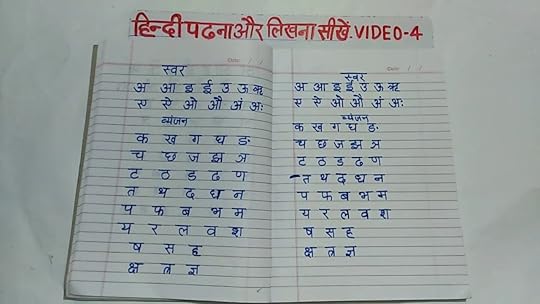 हिन्दी पढना और लिखना सीखें. VIDEO-4
Date: / /
स्वर
अ आ इ ई उ ऊ ऋ
ए ऐ ओ औ अं अः
व्यंजन
क ख ग घ ङ
च छ ज झ ञ
ट ठ ड ढ ण
त थ द ध न
प फ ब भ म
य र ल व श
ष स ह
क्ष त्र ज्ञ
Date: / /
स्वर
अ आ इ ई उ ऊ ऋ
ए ऐ ओ औ अं अः
व्यंजन
क ख ग घ ङ
च छ ज झ ञ
ट ठ ड ढ ण
त थ द ध न
प फ ब भ म
य र ल व श
ष स ह
क्ष त्र ज्ञ